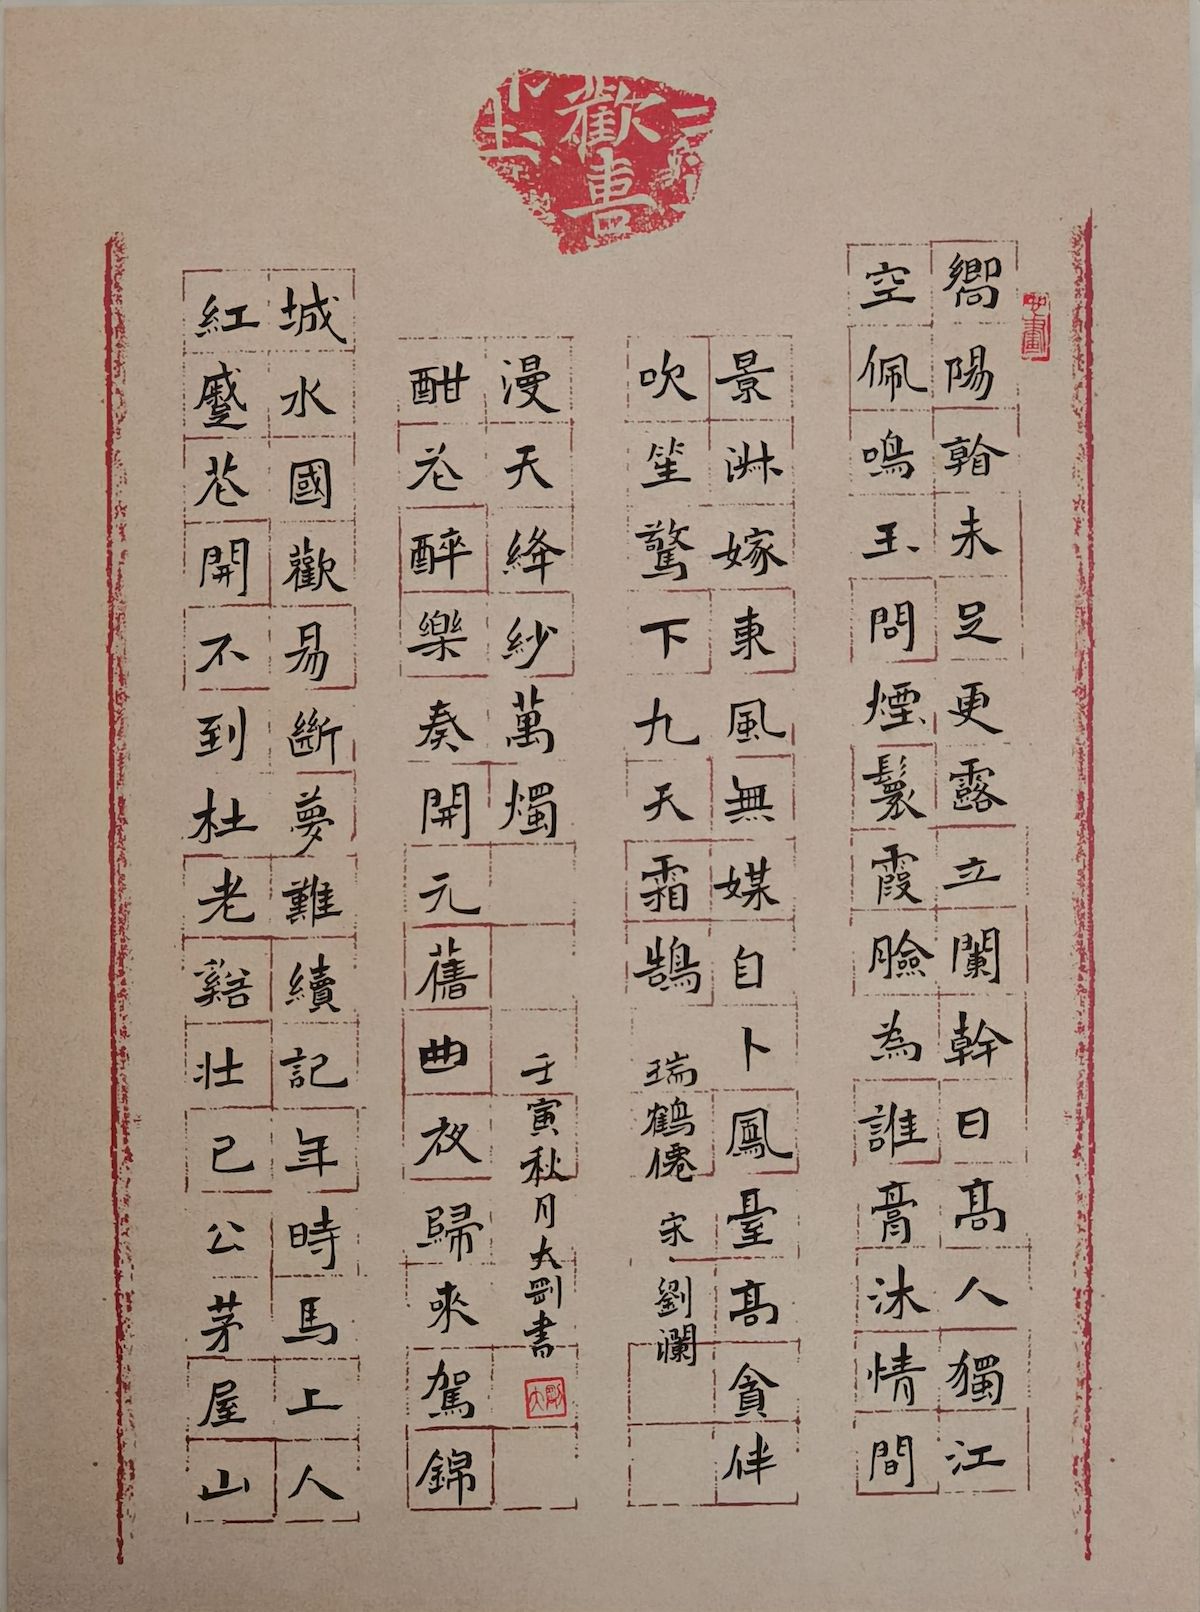 歡喜
嚮陽未足更露立闌幹日高人獨江
空佩鳴玉問煙鬟霞臉為誰膏沐情間
景淋嫁東風無媒自卜鳳臺高貪伴
吹笙驚下九天霜鵠
瑞鶴僊 宋·劉瀾
紅蹙花開不到杜老谿壮已公茅屋山
城水國歡易斷夢難續記年時馬上人
酣花醉樂奏開元舊曲夜歸來駕錦
漫天絳紗萬燭
壬寅秋月大剛書
大剛